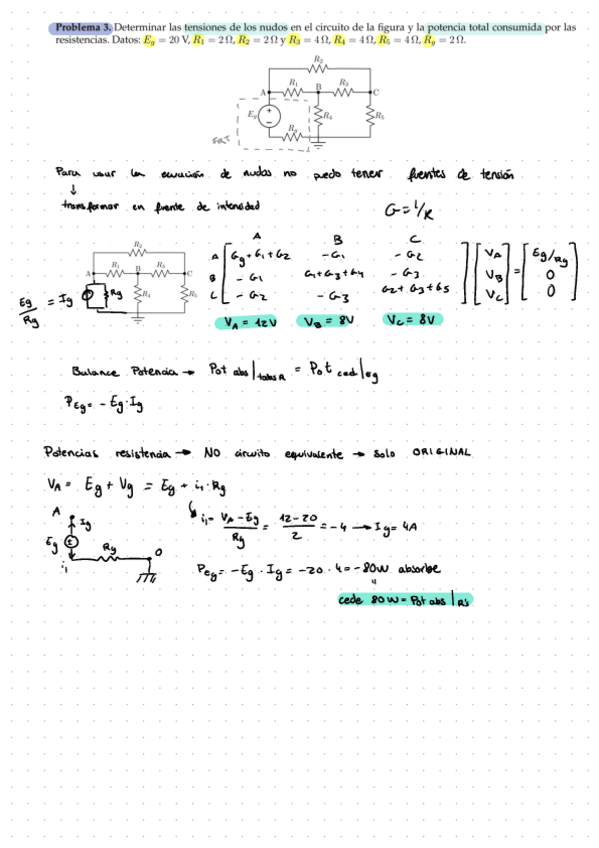 Problema 3. Determinar las tensiones de los nudos en el circuito de la figura y la potencia total consumida por las
resistencias. Datos: E_g = 20 V, R_1 = 2 Ω, R_2 = 2 Ω y R_3 = 4 Ω, R_4 = 4 Ω, R_5 = 4 Ω, R_g = 2 Ω.
R_2
A R_1 B R_3 C
E_g + − R_4 R_5
R_g
Para usar la ecuación de nudos no puedo tener fuentes de tensión
↓
transformar en fuente de intensidad
G = 1/R
R_2
A R_1 B R_3 C
Eg/Rg = Ig Rg R_4 R_5
A B C
A Gg+G1+G2 -G1 -G2 VA = Eg/Rg
B -G1 G1+G3+G4 -G3 VB 0
C -G2 -G3 G2+G3+G5 VC 0
VA = 12V VB = 8V VC = 8V
Balance Potencia → Pot abs|todas R = Pot ced|Eg
PEg = - Eg·Ig
Potencias resistencia → NO circuito equivalente → Solo ORIGINAL
VA = Eg + Vg = Eg + i1·Rg
i1 = (VA - Eg)/Rg = (12-20)/2 = -4 → Ig = 4A
A Ig
Eg Rg 0
i1
PEg = -Eg · Ig = -20 · 4 = -80W absorbe
cede 80W = Pot abs|R's